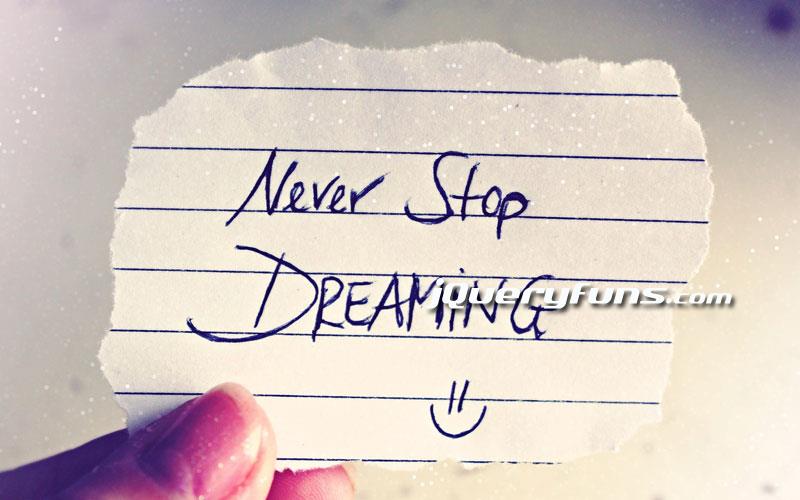 Never Stop
DREAMiNG
jQueryfuns.com